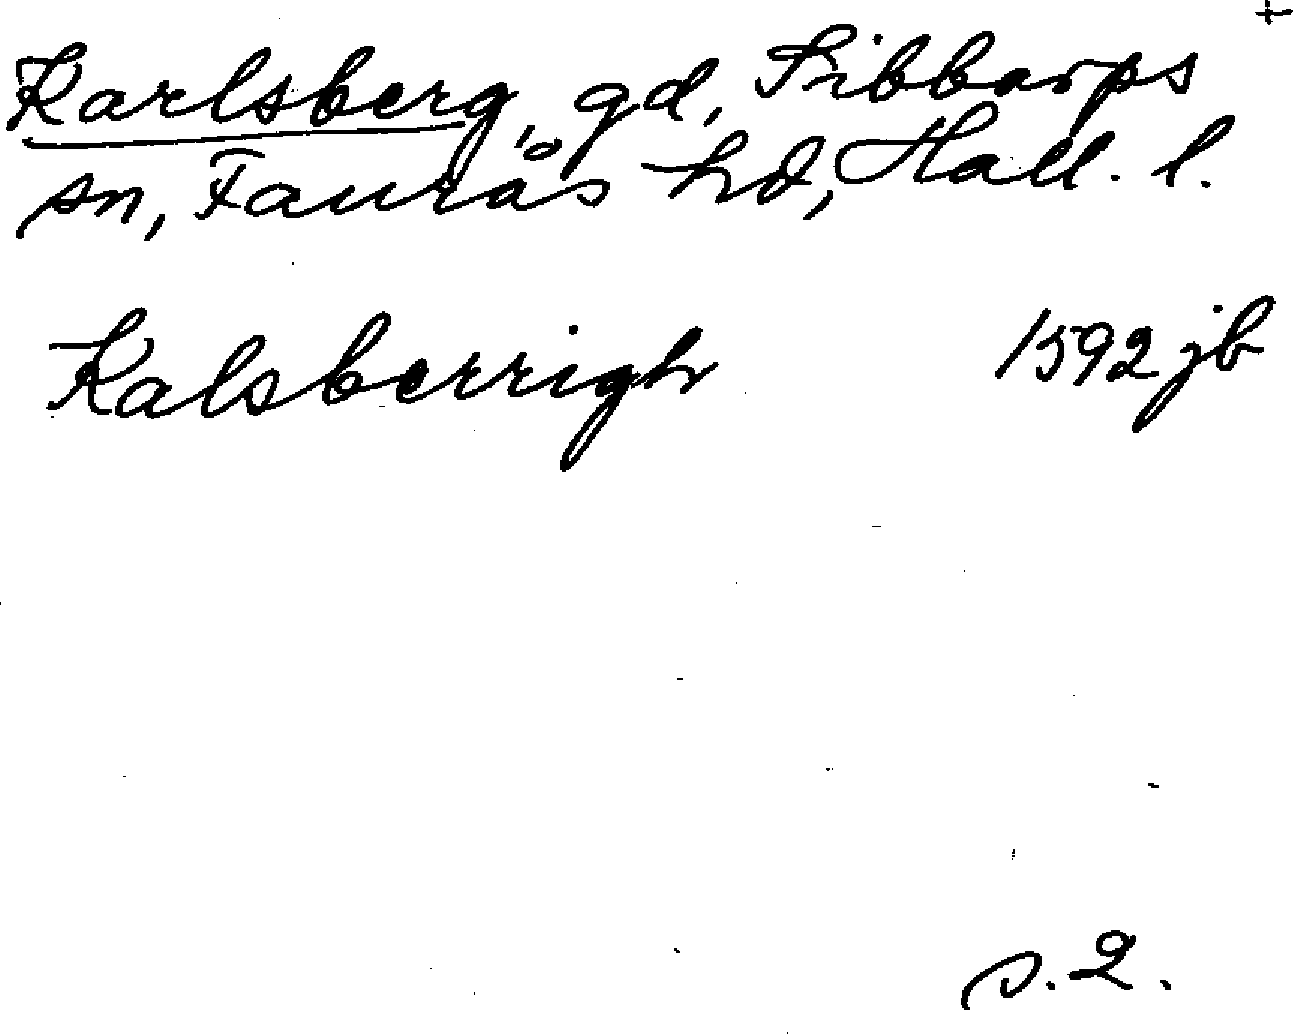 +
Karlsberg, gd, Sibbarps
sn, Faurås hd, Hall. l.
Kalsberrigh 1592 jb
s. 2.